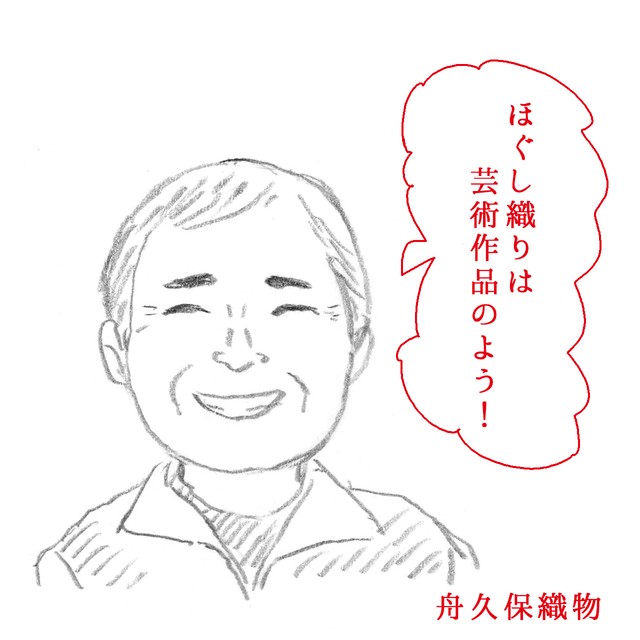 ほぐし織りは
芸術作品のよう！
舟久保織物